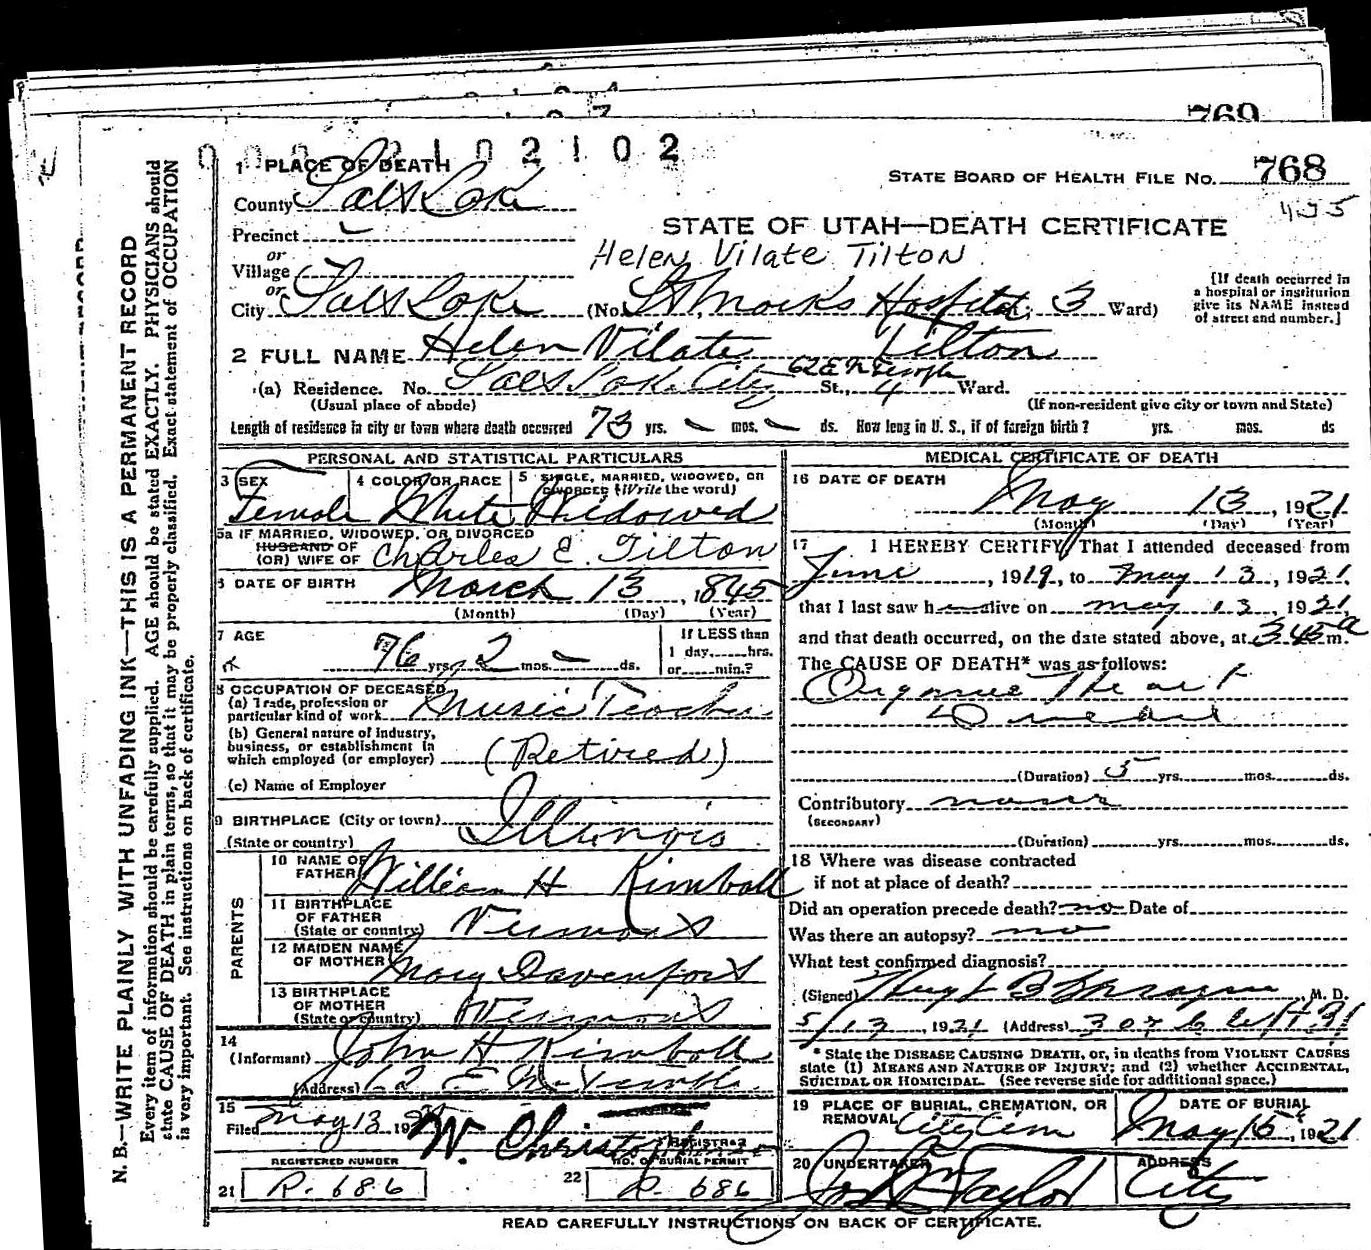 769
102102
1 PLACE OF DEATH
STATE BOARD OF HEALTH FILE No. 768
County Salt Lake
435
STATE OF UTAH—DEATH CERTIFICATE
Precinct
Helen Vilate Tilton
or
Village
or
City Salt Lake (No. St Marks Hospital, 3 Ward)
[If death occurred in
a hospital or institution
give its NAME instead
of street and number.]
2 FULL NAME Helen Vilate Tilton
(a) Residence. No. Salt Lake City 62 E N Temple St., 4 Ward.
(Usual place of abode) (If non-resident give city or town and State)
Length of residence in city or town where death occurred 73 yrs. mos. ds. How long in U. S., if of foreign birth? yrs. mos. ds
PERSONAL AND STATISTICAL PARTICULARS
3 SEX 4 COLOR OR RACE 5 SINGLE, MARRIED, WIDOWED, OR
DIVORCED (Write the word)
Female White Widowed
5a IF MARRIED, WIDOWED, OR DIVORCED
HUSBAND OF
(OR) WIFE OF Charles E. Tilton
6 DATE OF BIRTH March 13, 1845
(Month) (Day) (Year)
7 AGE
76 yrs. 2 mos. ds.
If LESS than
1 day, hrs.
or min.?
8 OCCUPATION OF DECEASED
(a) Trade, profession or
particular kind of work Music Teacher
(b) General nature of industry,
business, or establishment in
which employed (or employer) (Retired)
(c) Name of Employer
9 BIRTHPLACE (City or town)
(State or country) Illinois
PARENTS
10 NAME OF
FATHER William H Kimball
11 BIRTHPLACE
OF FATHER
(State or country) Vermont
12 MAIDEN NAME
OF MOTHER Mary Davenport
13 BIRTHPLACE
OF MOTHER
(State or country) Vermont
14
(Informant) John H Kimball
(Address)
15
Filed May 13 192
W. Christopherson
REGISTRAR
REGISTERED NUMBER
21 R. 686
NO. OF BURIAL PERMIT
22 R. 686
MEDICAL CERTIFICATE OF DEATH
16 DATE OF DEATH
May 13, 1921
(Month) (Day) (Year)
17 I HEREBY CERTIFY, That I attended deceased from
June, 1919, to May 13, 1921,
that I last saw h alive on May 13, 1921,
and that death occurred, on the date stated above, at 345 a m.
The CAUSE OF DEATH* was as follows:
Organic Heart
Disease
(Duration) 5 yrs. mos. ds.
Contributory none
(SECONDARY)
(Duration) yrs. mos. ds.
18 Where was disease contracted
if not at place of death?
Did an operation precede death? no Date of
Was there an autopsy? no
What test confirmed diagnosis?
(Signed) Hugh B Sprague M. D.
5/13, 1921 (Address)
* State the DISEASE CAUSING DEATH, or, in deaths from VIOLENT CAUSES
state (1) MEANS AND NATURE OF INJURY; and (2) whether ACCIDENTAL,
SUICIDAL OR HOMICIDAL. (See reverse side for additional space.)
19 PLACE OF BURIAL, CREMATION, OR
REMOVAL
DATE OF BURIAL
May 15, 1921
20 UNDERTAKER ADDRESS
Taylor City
READ CAREFULLY INSTRUCTIONS ON BACK OF CERTIFICATE.
N. B.—WRITE PLAINLY WITH UNFADING INK—THIS IS A PERMANENT RECORD
Every item of information should be carefully supplied. AGE should be stated EXACTLY. PHYSICIANS should
state CAUSE OF DEATH in plain terms, so that it may be properly classified. Exact statement of OCCUPATION
is very important. See instructions on back of certificate.